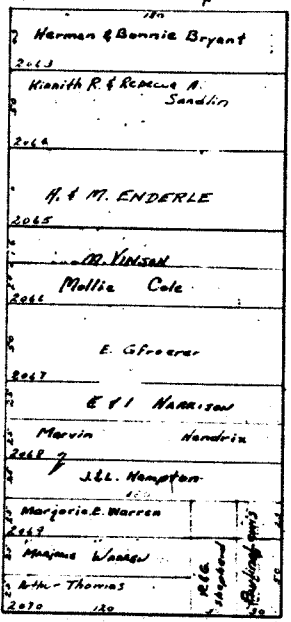 150
Herman & Bonnie Bryant
2063
Kinnith R. & Rebecca A.
Sandlin
50
2064
H. & M. ENDERLE
2065
M. VINSON
Mollie Cole
2066
50
E. Gfroerer
2067
E & I HARRISON
25
25
Marvin Hendrix
2068
J. & L. Hampton
25
25
Marjorie E. Warren
2069
25
Marjorie WARREN
25
Arthur Thomas
2070 120
R & G
Shepherd
50